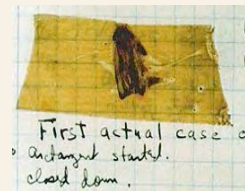 First actual case o
antangent started.
closed down.